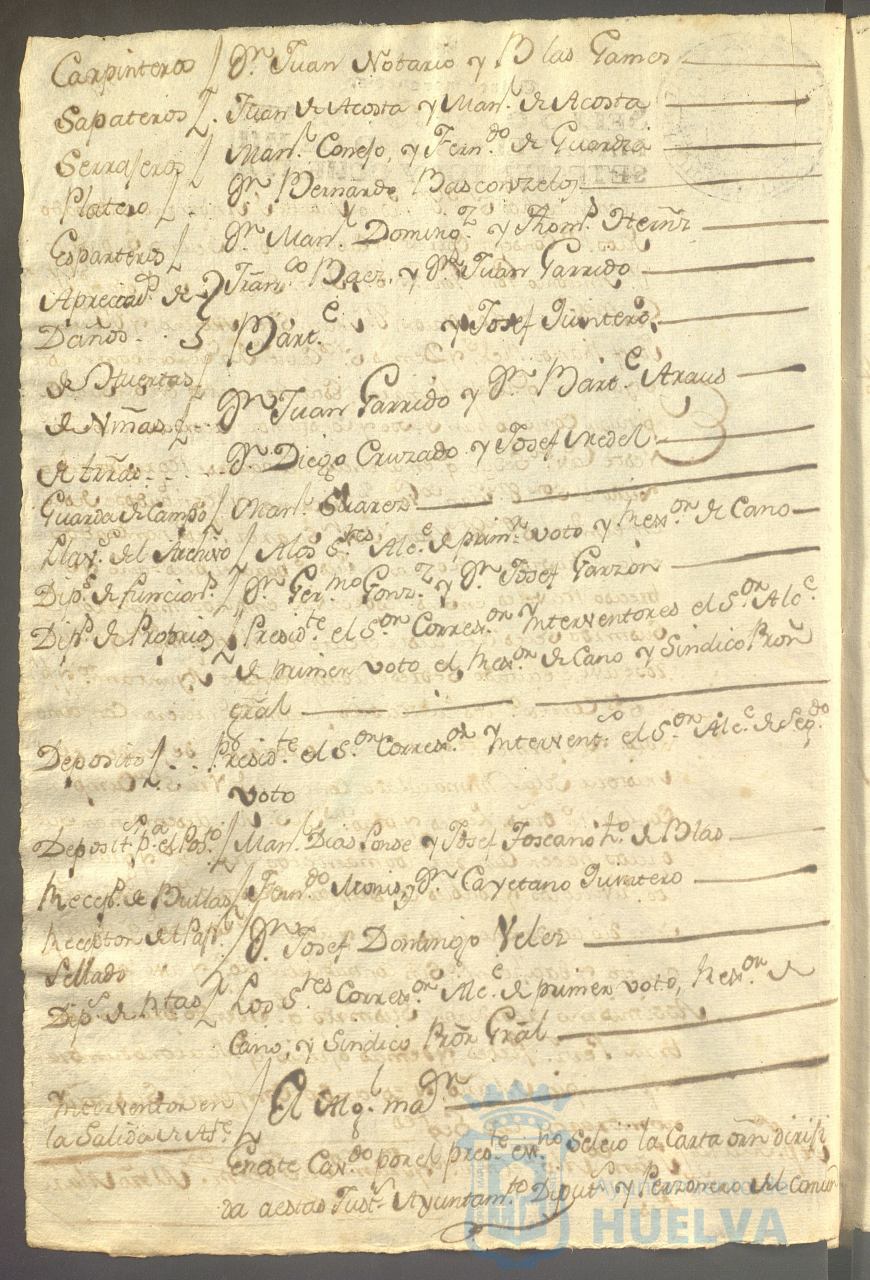 Carpinteros / Dn. Juan Notario y Blas Gomes
Sapateros / Juan de Acosta y Manl. de Acosta
Serrajeros / Manl. Conejo, y Fern.do de Guardia
Platero / Dn. Bernardo Basconzelos
Esparteros / Dn. Manl. Doming.z y Thoms. Hernz
Apreciads. de Franco. Baez, y Dn. Juan Garrido
Daños Bart.e y Josef Quintero
de Huertas
de Viñas / Dn. Juan Garrido y Dn. Bart.e Araus
de trras. Dn. Diego Cruzado y Josef Redel
Guarda de Campo / Manl. Suares
Llavs. del Archivo / A los S.res Alc.e de primr. voto y Rex.or de Cano
Dips. de funcions. / Dn. Ger.mo Gonz.z y Dn. Josef Garzon
Dips. de Proprios / Presid.te el S.or Correx.or Y Interventores el S.or Alc.e
de primer voto el Rex.or de Cano y Sindico Pror
gral
Deposito / Presid.te el S.or Correx.or Y Intervent.o el S.or Alc.e de Seg.do
voto
Manl. Dias Ponse y Josef Toscano h.o de Blas
Recepr. de Bullas / Fern.do Monis, y Dn. Cayetano Quintero
Receptor del Papl. / Dn. Josef Domingo Velez
Sellado
Dips. de Rtas / Los S.res Correx.or Alc.e de primer voto, Rex.or de
Cano, y Sindico Pror Gral
Interventor en / El Alg.l mar.
la Salida de
En este Cav.do por el pres.te es.no se leió la Carta orn dirisi
da a estas Just.s Ayuntam.to Diput.s y Personero del Comun
Ayuntamiento de
HUELVA